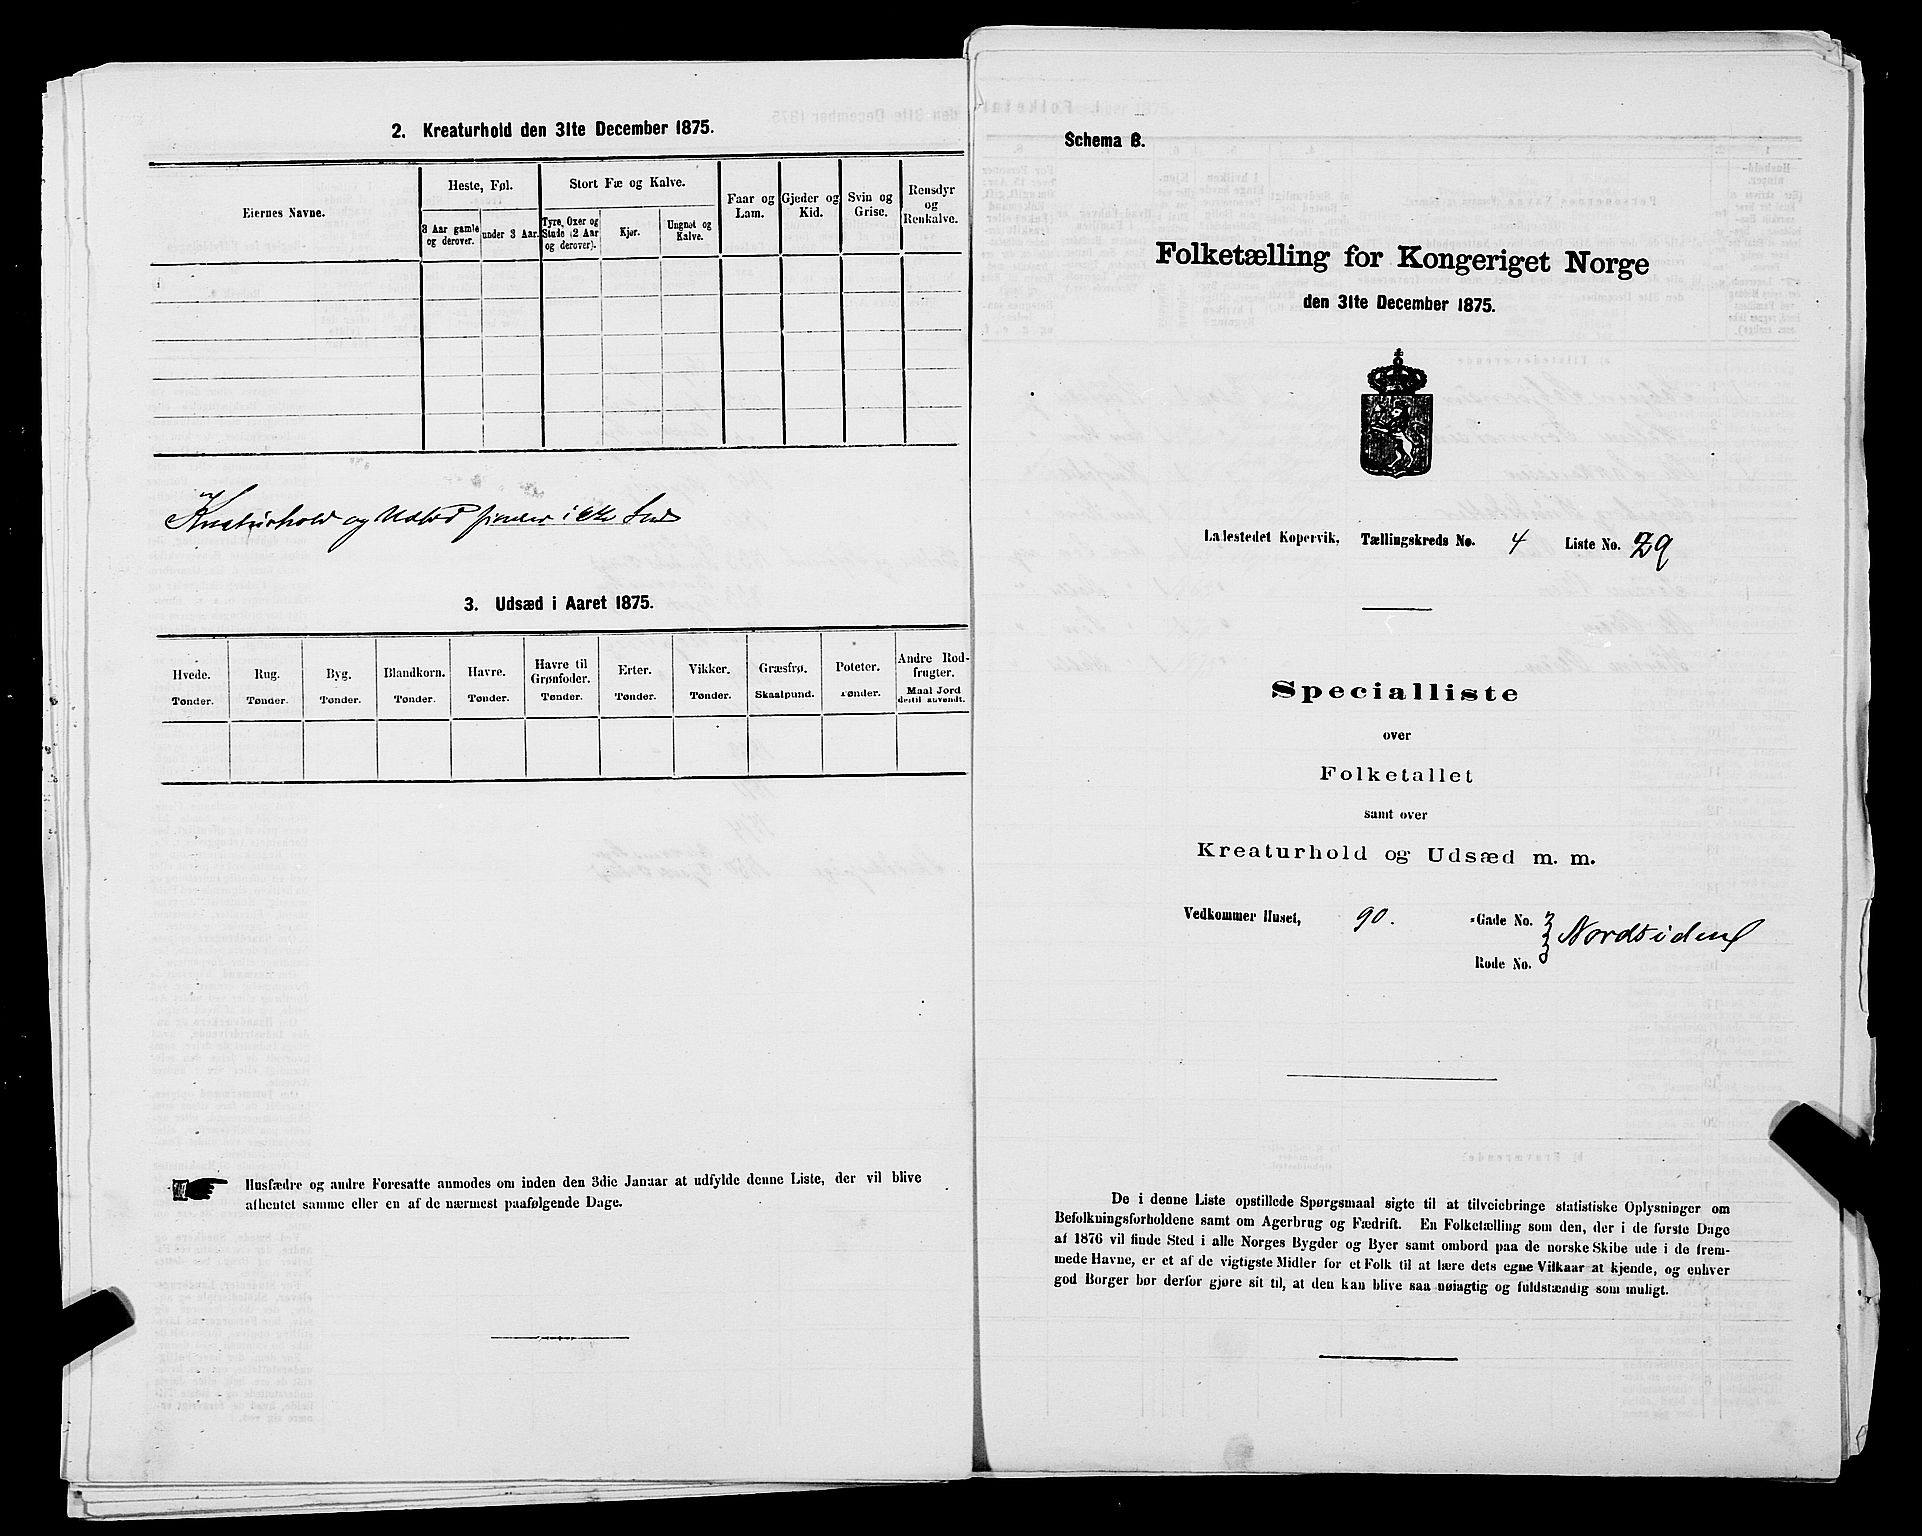 2. Kreaturhold den 31te December 1875.
Eiernes Navne.
Heste, Føl.
3 Aar gamle og derover.
under 3 Aar.
Stort Fæ og Kalve.
Tyre, Oxer og Stude (2 Aar og derover).
Kjør.
Ungnøt og Kalve.
Faar og Lam.
Gjeder og Kid.
Svin og Grise.
Rensdyr og Renkalve.
Kreaturhold og Udsæd finder ikke Sted
3. Udsæd i Aaret 1875.
Hvede. Tønder.
Rug. Tønder.
Byg. Tønder.
Blandkorn. Tønder.
Havre. Tønder.
Havre til Grønfoder. Tønder.
Erter. Tønder.
Vikker. Tønder.
Græsfrø. Skaalpund.
Poteter. Tønder.
Andre Rodfrugter. Maal Jord dertil anvendt.
Husfædre og andre Foresatte anmodes om inden den 3die Januar at udfylde denne Liste, der vil blive
afhentet samme eller en af de nærmest paafølgende Dage.
Schema B.
Folketælling for Kongeriget Norge
den 31te December 1875.
Ladestedet Kopervik, Tællingskreds No. 4 Liste No. 29
Specialliste
over
Folketallet
samt over
Kreaturhold og Udsæd m. m.
Vedkommer Huset, 90. -Gade No.
Nordsiden
Rode No.
De i denne Liste opstillede Spørgsmaal sigte til at tilveiebringe statistiske Oplysninger om
Befolkningsforholdene samt om Agerbrug og Fædrift. En Folketælling som den, der i de første Dage
af 1876 vil finde Sted i alle Norges Bygder og Byer samt ombord paa de norske Skibe ude i de frem-
mede Havne, er et af de vigtigste Midler for et Folk til at lære dets egne Vilkaar at kjende, og enhver
god Borger bør derfor gjøre sit til, at den kan blive saa nøiagtig og fuldstændig som muligt.